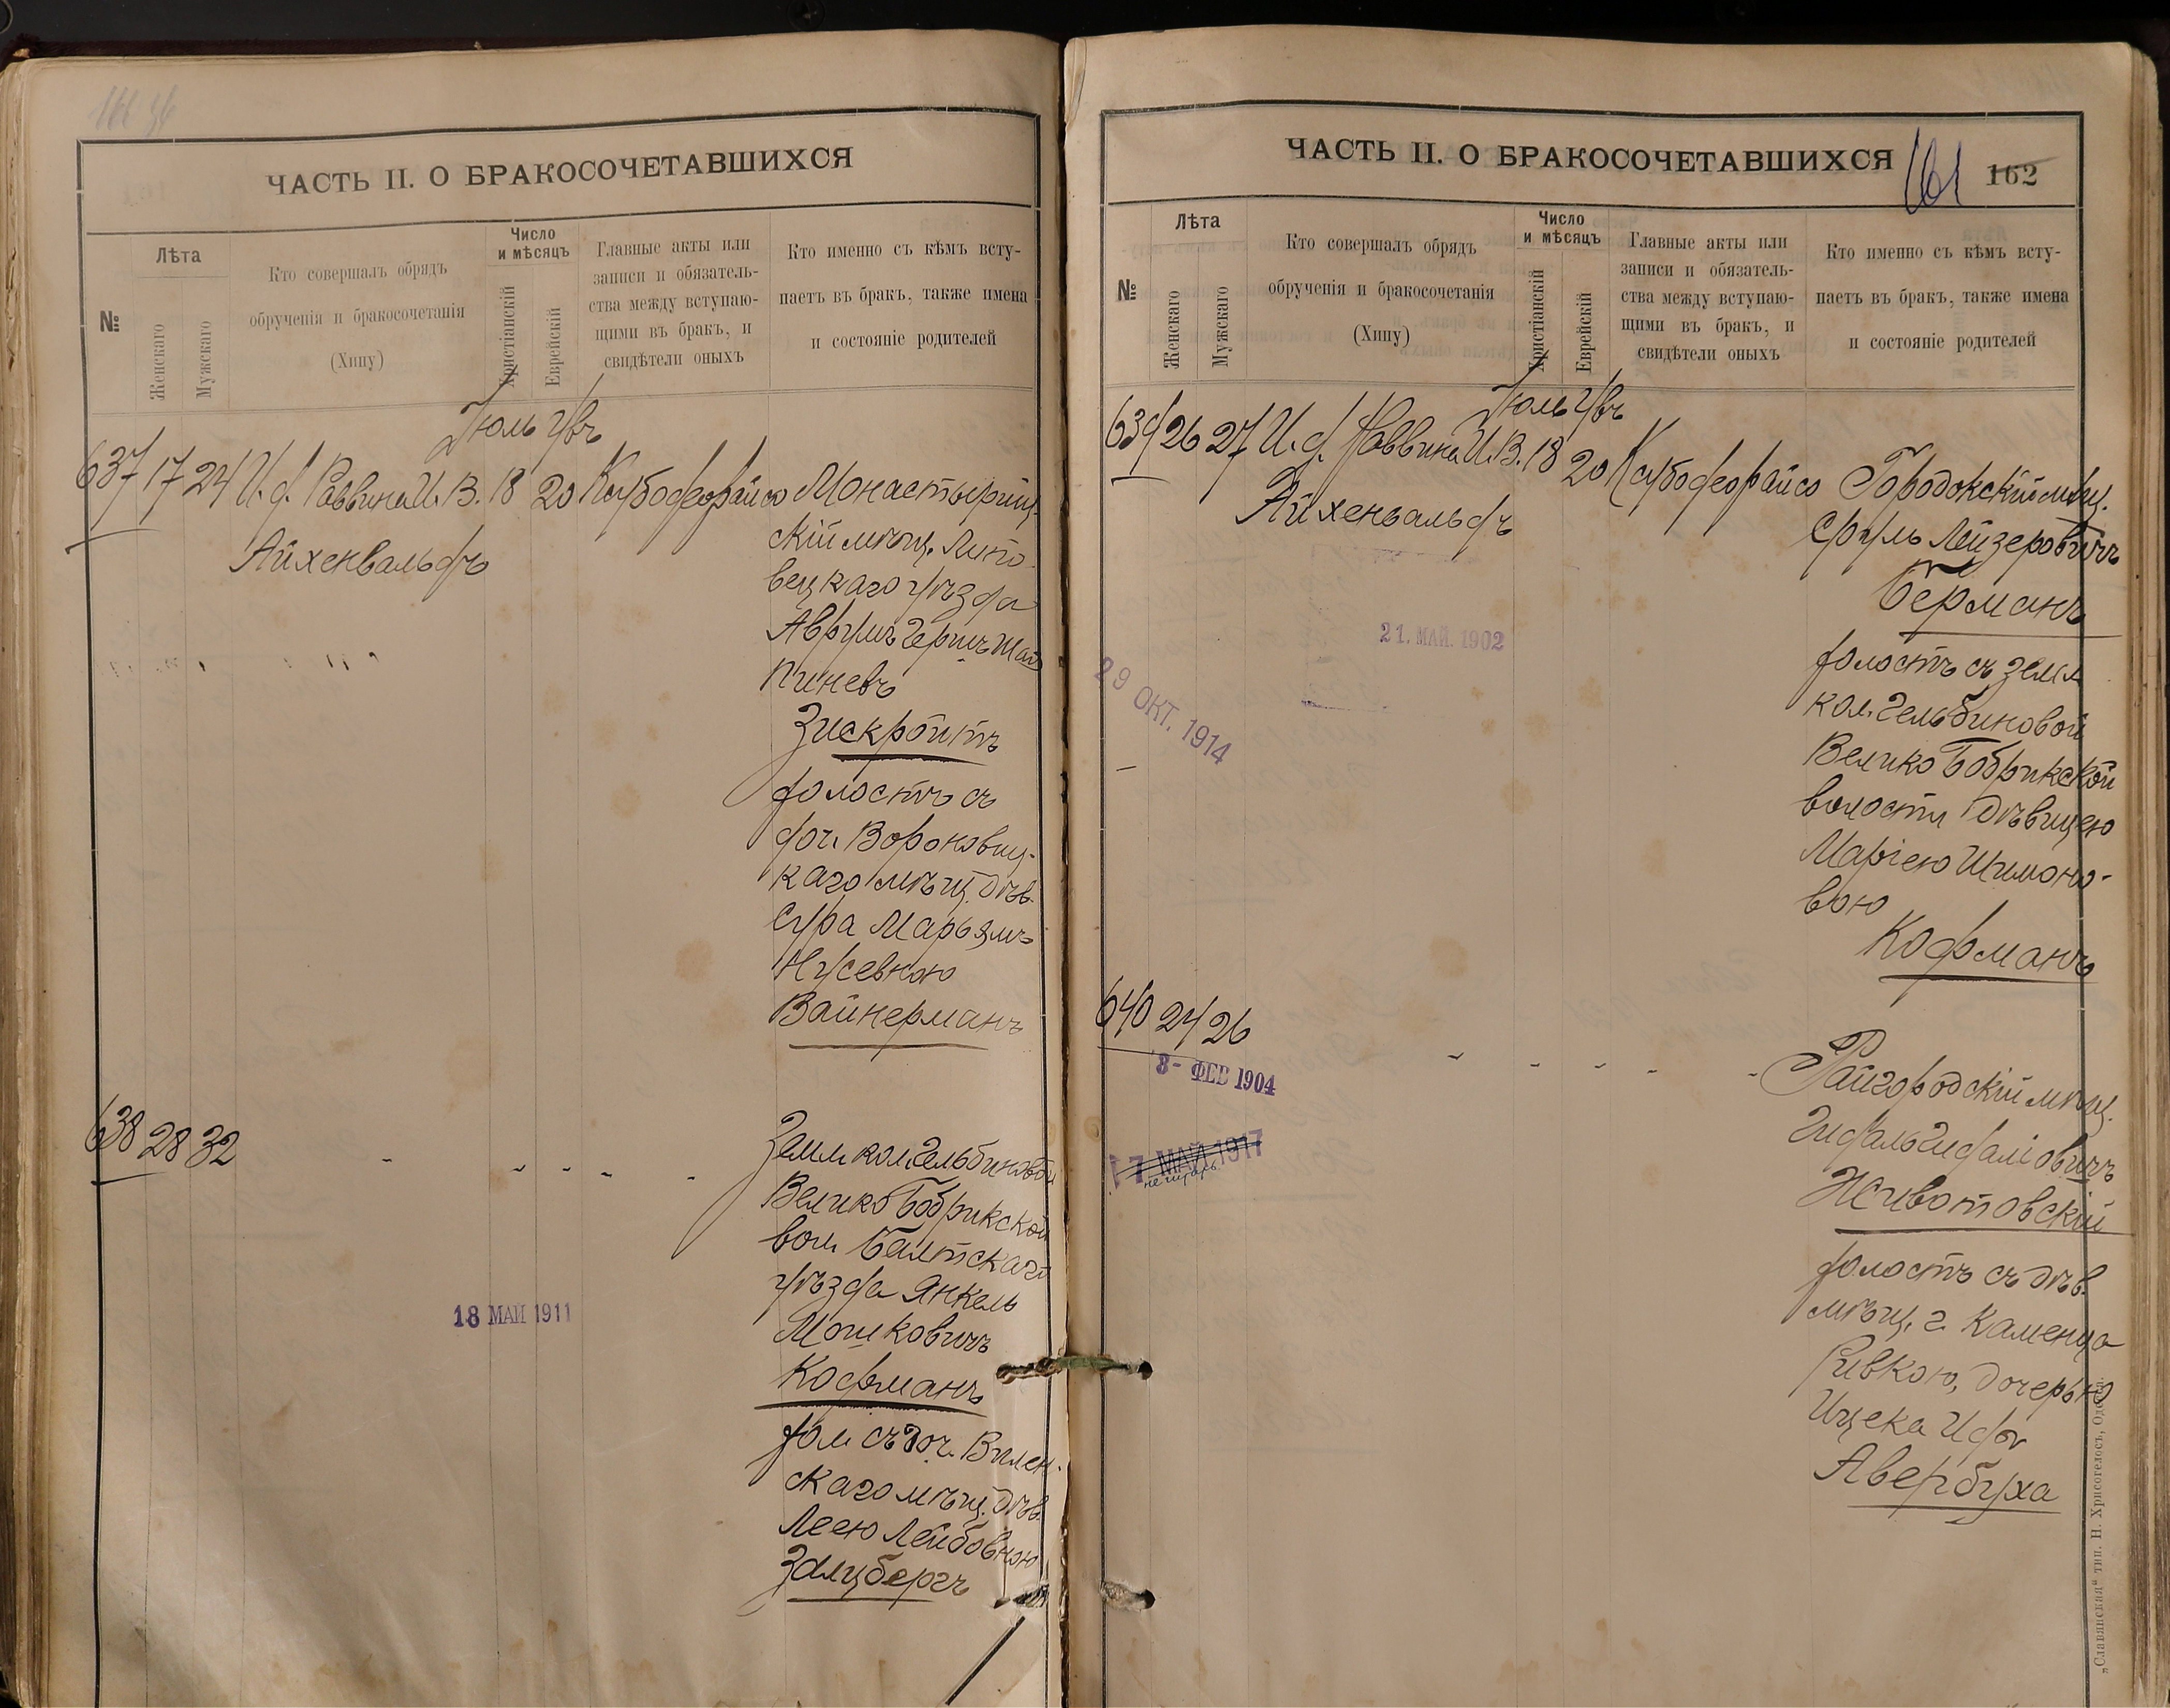 ЧАСТЬ II. О БРАКОСОЧЕТАВШИХСЯ
№
Лѣта
Женскаго
Мужскаго
Кто совершалъ обрядъ
обрученія и бракосочетанія
(Хипу)
Число
и мѣсяцъ
Христіанскій
Еврейскій
Главные акты или
записи и обязатель-
ства между вступаю-
щими въ бракъ, и
свидѣтели оныхъ
Кто именно съ кѣмъ всту-
паетъ въ бракъ, также имена
и состояніе родителей
Іюль
637 17 24 И. д. Раввина И. В. 18 20
Айхенвальдъ
Монастырищ-
скій мѣщ. Липо-
вецкаго уѣзда
Аврумъ Гершъ
Пиневъ
Зискройтъ
холостъ съ
доч. Вороновиц-
каго мѣщ. дѣв.
Сура Марьямъ
Нусевною
Вайнерманъ
638 28 32
Земл. кол. Гельбиновой
Велико Бобрикской
вол. Балтскаго
уѣзда Янкель
Мошковичъ
Кофманъ
хол. съ доч. Вилен-
скаго мѣщ. дѣв.
Леею Лейбовною
Залцбергъ
18 МАЙ 1911
ЧАСТЬ II. О БРАКОСОЧЕТАВШИХСЯ
161 162
№
Лѣта
Женскаго
Мужскаго
Кто совершалъ обрядъ
обрученія и бракосочетанія
(Хипу)
Число
и мѣсяцъ
Христіанскій
Еврейскій
Главные акты или
записи и обязатель-
ства между вступаю-
щими въ бракъ, и
свидѣтели оныхъ
Кто именно съ кѣмъ всту-
паетъ въ бракъ, также имена
и состояніе родителей
Іюль
639 26 27 И. д. Раввина И. В. 18 20
Айхенвальдъ
Городокскій мѣщ.
Сруль Лейзеровичъ
Берманъ
холостъ съ земл.
кол. Гельбиновой
Велико Бобрикской
волости дѣвицею
Маріею Шимоно-
вою
Кофманъ
21. МАЙ. 1902
29 ОКТ. 1914
640 24 26
8- ФЕВ 1904
17 МАЙ 1917
Райгородскій мѣщ.
Гидаль Гидаліовичъ
Животовскій
холостъ съ дѣв.
мѣщ. г. Каменца
Ривкою, дочерью
Ицека
Авербуха
„Славянская“ тип. Н. Хрисогелосъ, Одесса.